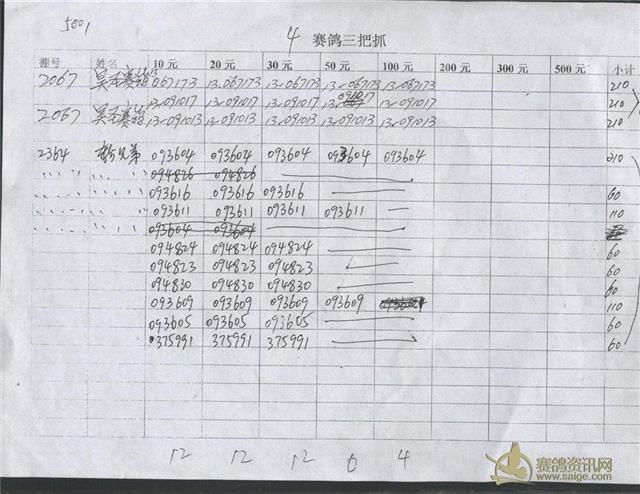 5001
4 赛鸽三把抓
棚号 姓名 10元 20元 30元 50元 100元 200元 300元 500元 小计
2067 13-067173 13-067173 13-067173 13-067173 13-067173 210
13-091017 13-091017 13-091017 13- 091017 13-091017 210
2067 13-091013 13-091013 13-091013 13-091013 13-091013 210
2364 兄弟 093604 093604 093604 093604 093604 210
094826 094826
093616 093616 093616 60
093611 093611 093611 093611 110
093604 093604
094824 094824 094824 60
094823 094823 094823 60
094830 094830 094830 60
093609 093609 093609 093609 110
093605 093605 093605 60
375991 375991 375991 60
12 12 12 6 4
赛鸽资讯网
www.saige.com